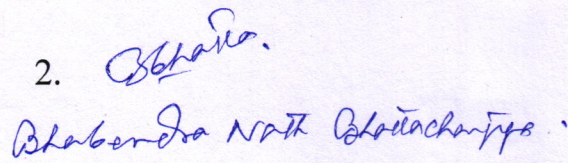 2.
Bhabendra Nath Bhattacharjya.